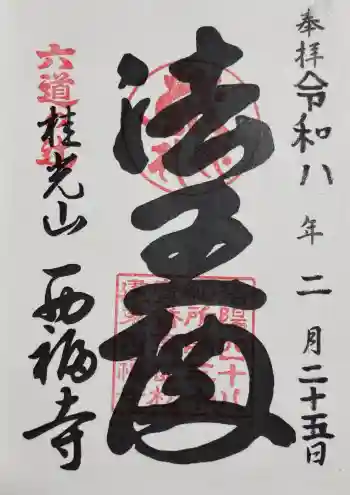 奉拝
令和八年二月二十五日
法王殿
六道
桂光山
西福寺